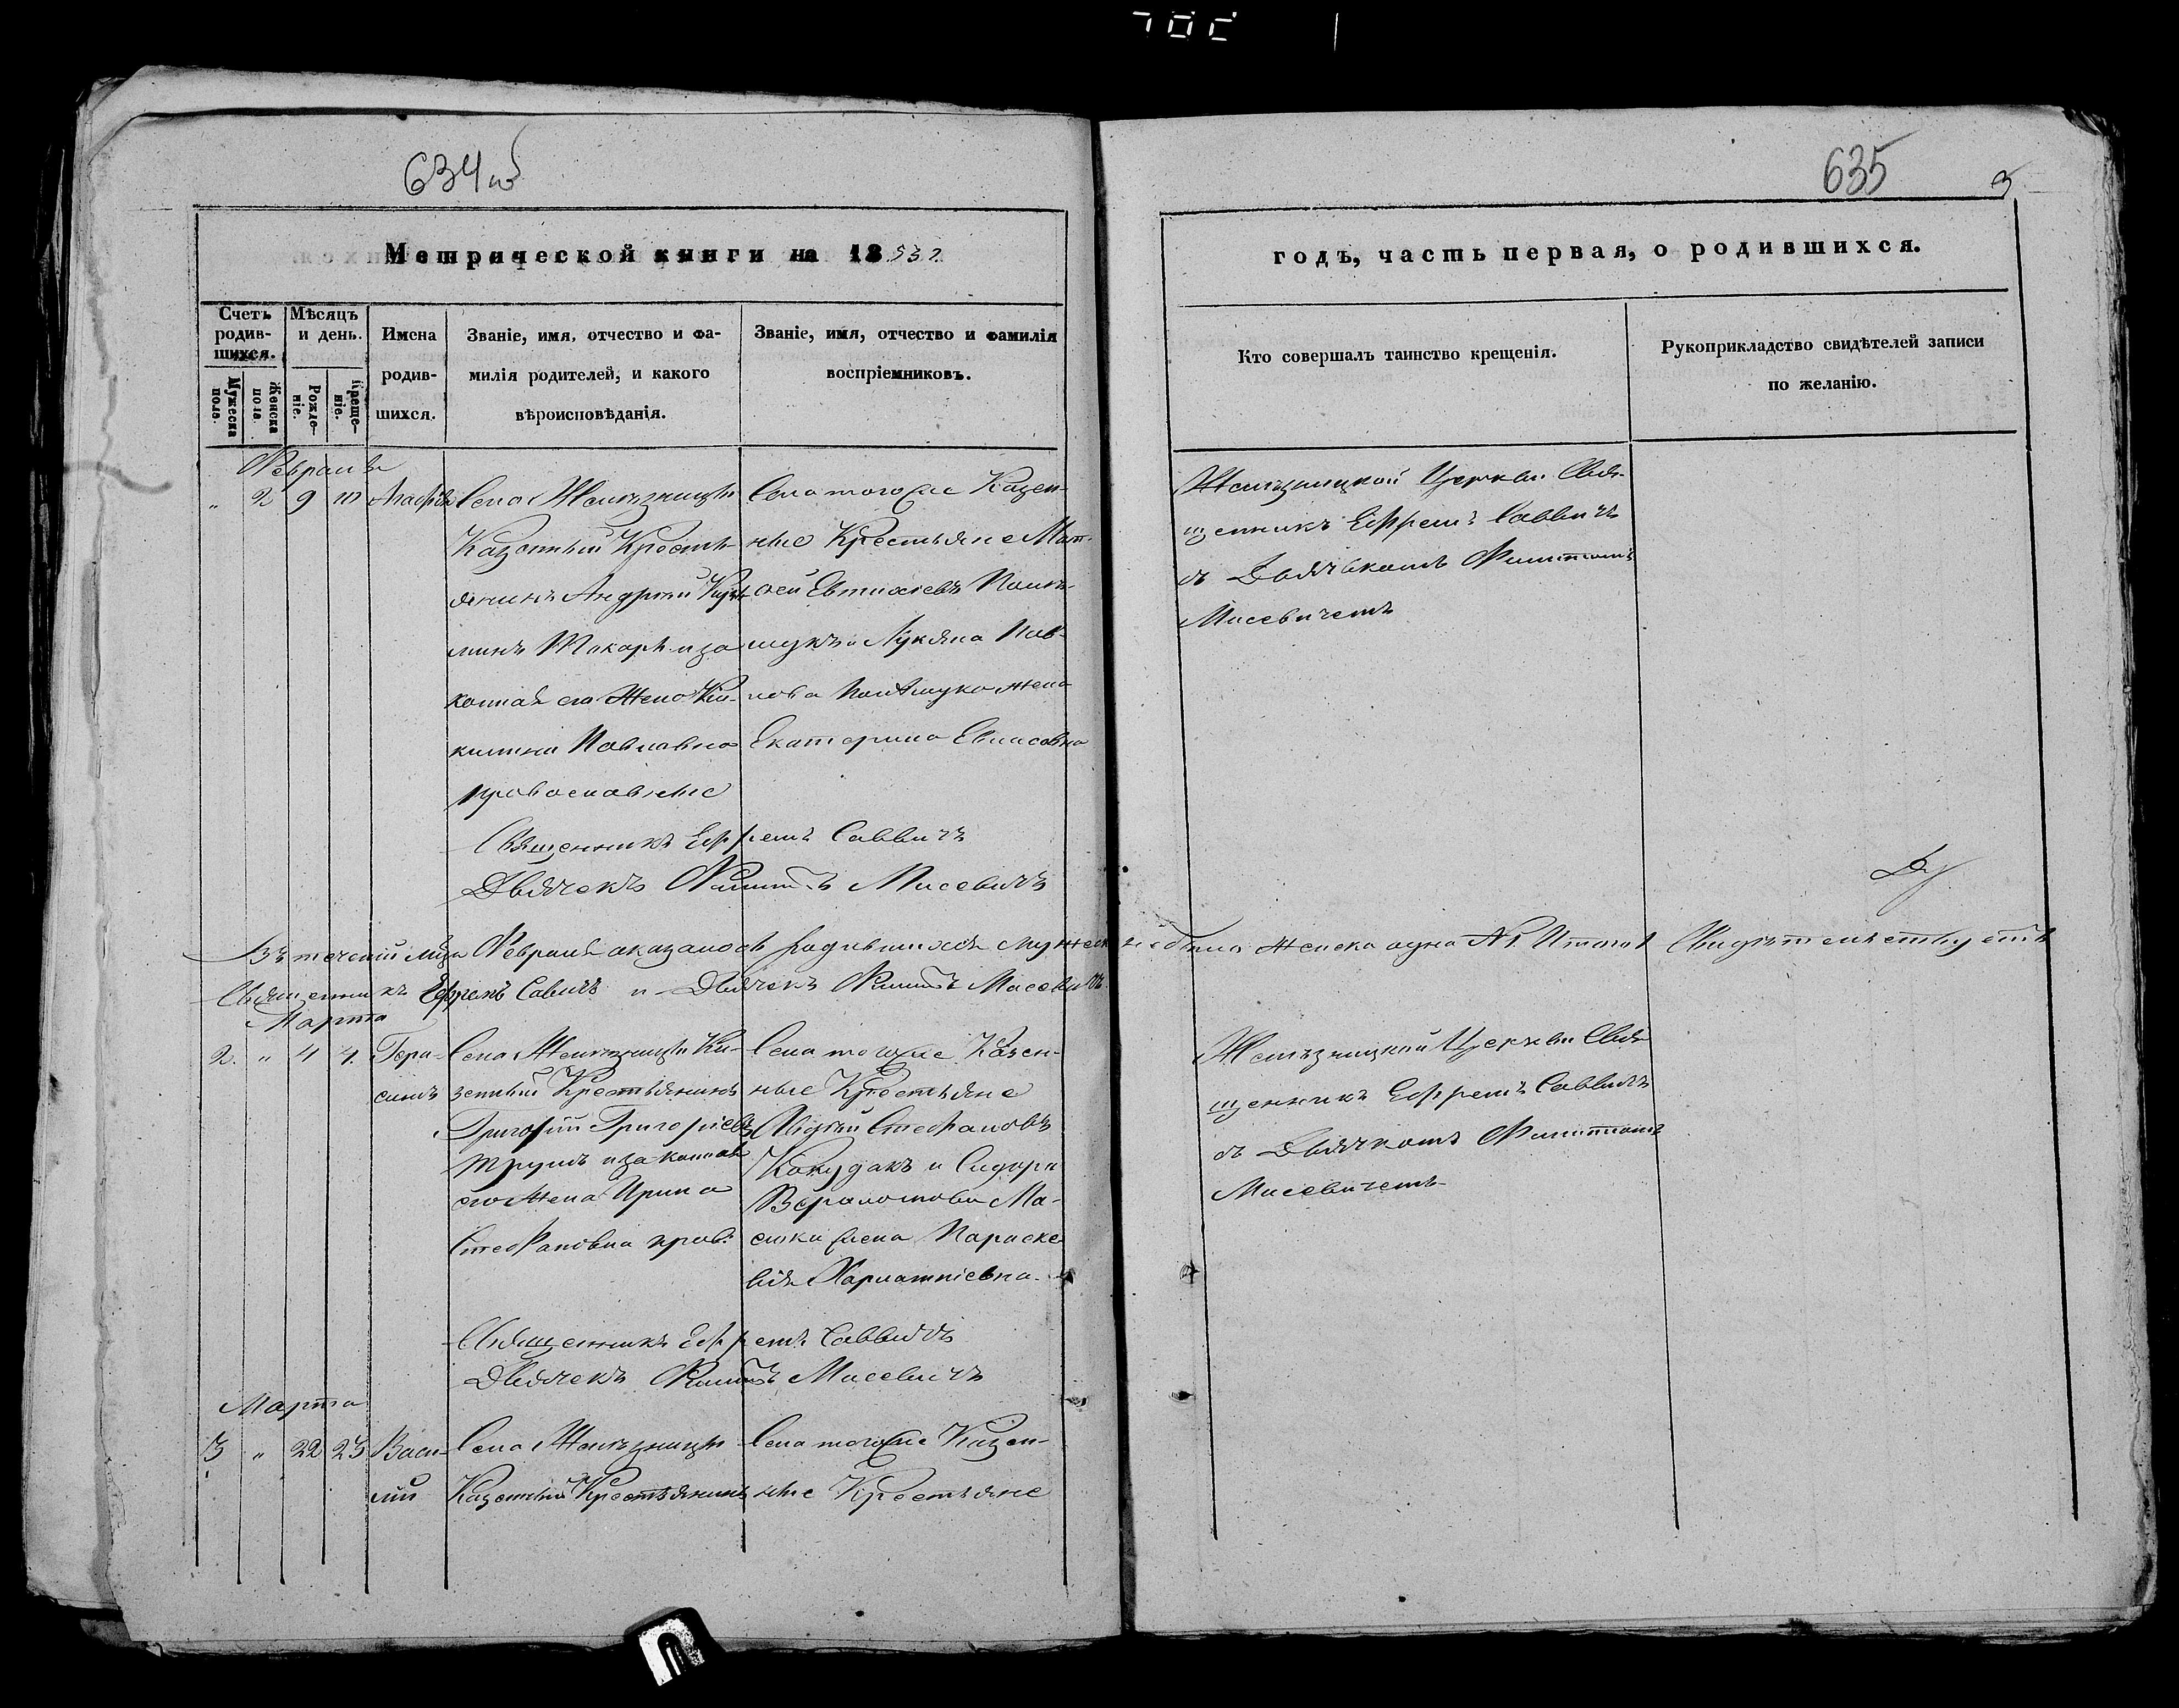 634 об
635
3
Метрической книги на 1853 г.
годъ, часть первая, о родившихся.
Счетъ родив-шихся.
Мужеска пола.
Женска пола.
Мѣсяцъ и день.
Рожде-ніе.
Креще-ніе.
Имена
родив-
шихся.
Званіе, имя, отчество и фа-
милія родителей, и какого
вѣроисповѣданія.
Званіе, имя, отчество и фамилія
воспріемниковъ.
Кто совершалъ таинство крещенія.
Рукоприкладство свидѣтелей записи
по желанію.
Февраля
" 2 9 10 Агафія
Села Желѣзницы
Казенный Кресть-
янинъ Андрей Кузь-
минъ Токарь и за
конная его жена
Павловна
православные
Села того же Казен-
ные Крестьяне Мат-
фей Евтихіевъ Поли-
щукъ и Лукяна Пав-
лова Полищука жена
Екатерина
Желѣзницкой Церкви Свя-
щенникъ Ефремъ Саввичъ
съ Дьячкомъ Филиппомъ
Мисевичемъ
Священникъ Ефремъ Саввичъ
Дьячекъ Филиппъ Мисевичъ
Въ теченіи м-ца Февраля оказалось родившихся мужеска не было женска одна № 1 Итого 1 Свидѣтельствуетъ
Священникъ Ефремъ Савичъ и Дьячекъ Филиппъ Мисевичъ
Марта
2. " 4 4. Гера-
симъ
Села Желѣзницы Ка-
зенный Крестьянинъ
Григорій Григоріевъ
и законная
его жена Ирина
Стефановна прав.
Села того же Казен-
ные Крестьяне
Авдѣй Стефановъ
и Сидора
Ма-
жена Параске
вія Харлампіевна.
Желѣзницкой Церкви Свя-
щенникъ Ефремъ Саввичъ
съ Дьячкомъ Филиппомъ
Мисевичемъ
Священникъ Ефремъ Саввичъ
Дьячекъ Филиппъ Мисевичъ
Марта
3 " 22 23 Васи-
лій
Села Желѣзницы
Казенный Крестьянинъ
Села того же Казен-
ные Крестьяне